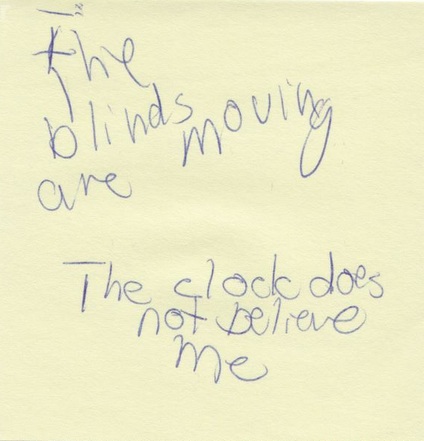 The
blinds moving
are
The clock does
not believe
me